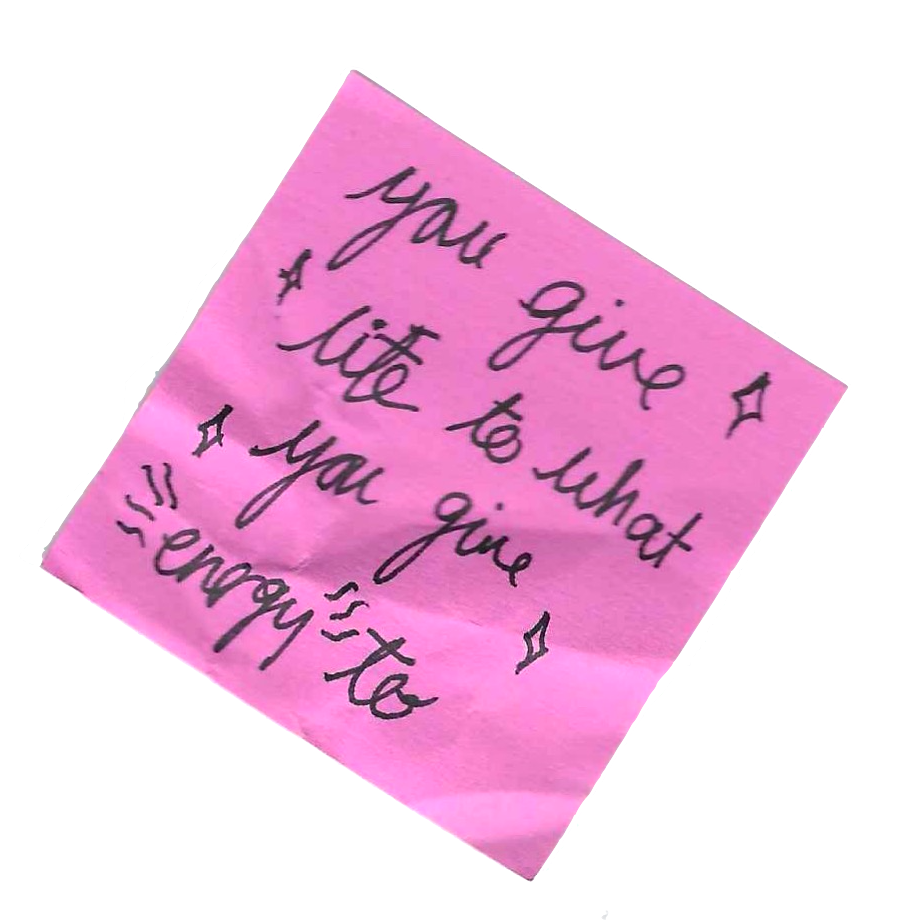 you give
life to what
you give
energy to